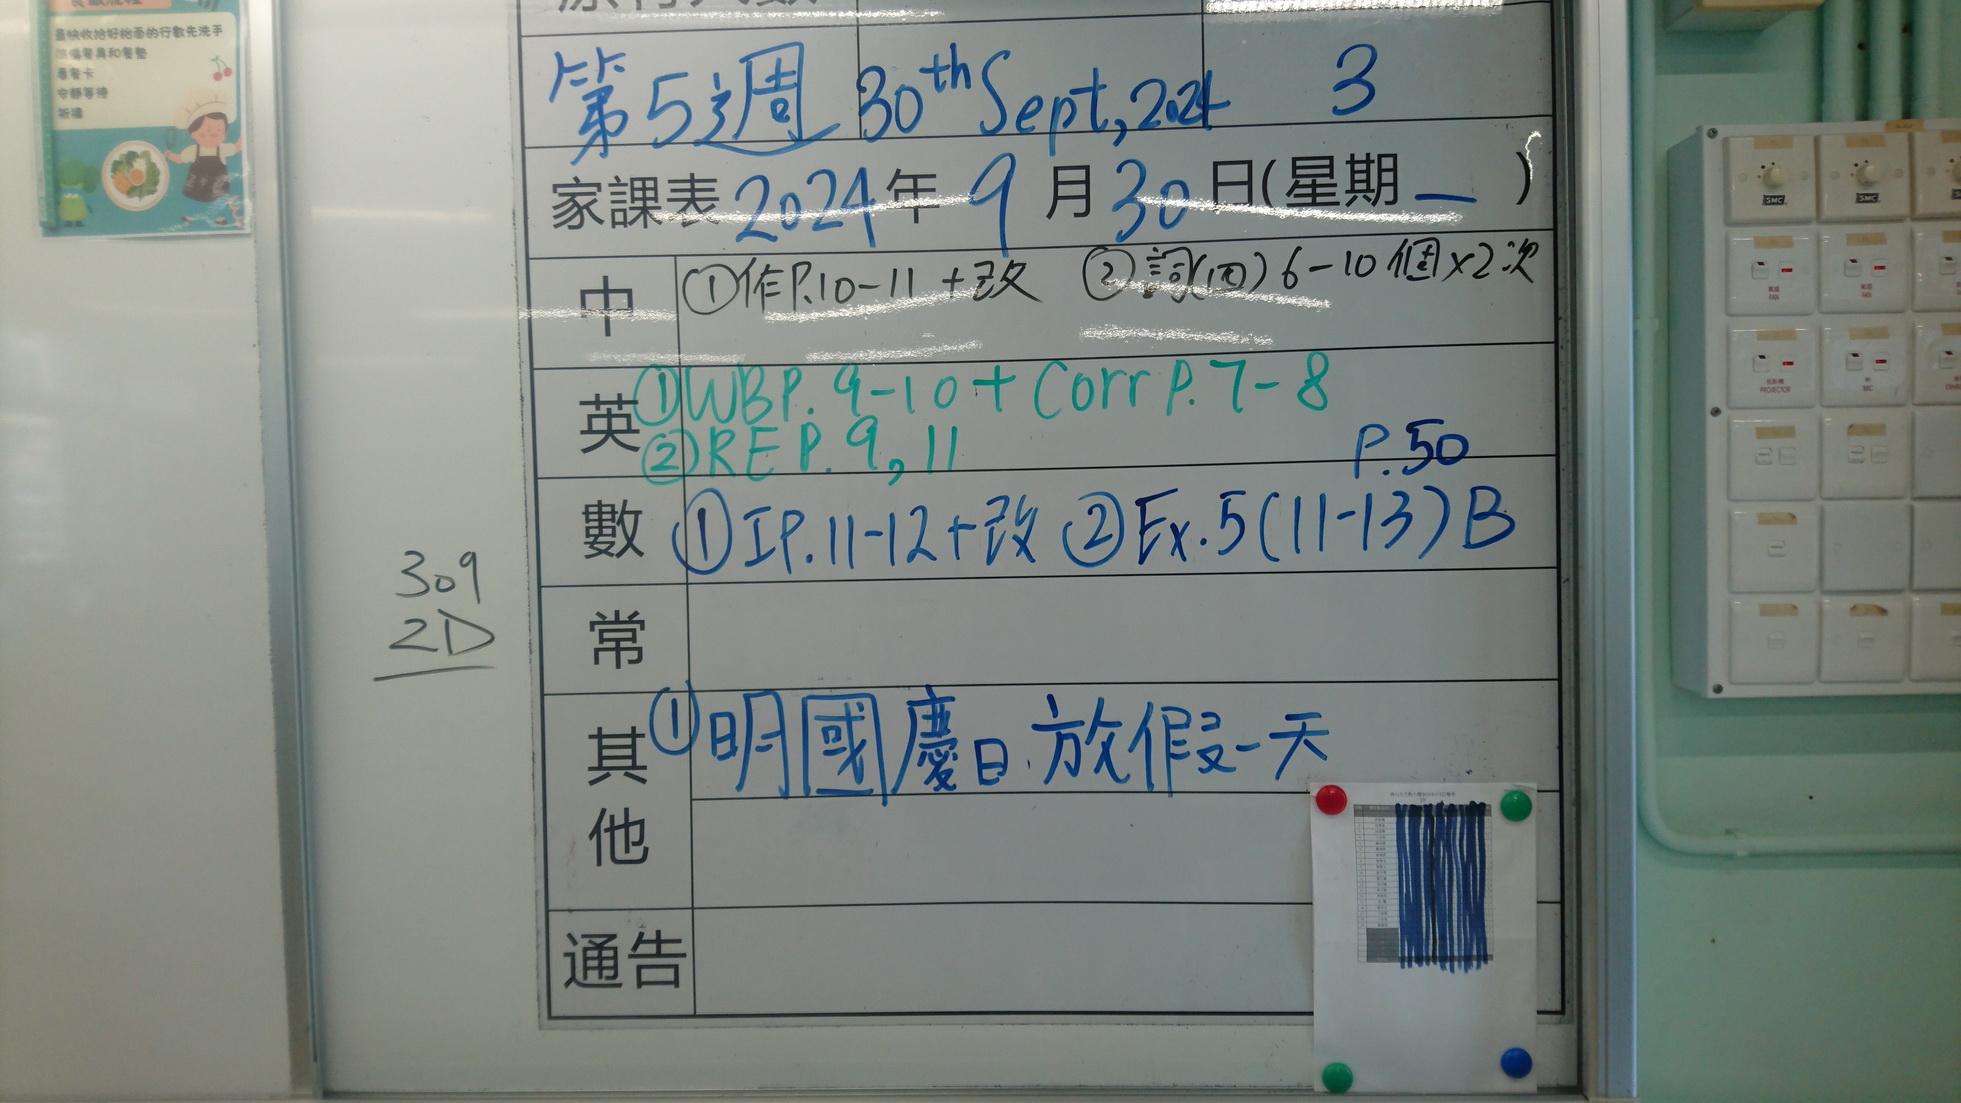 最快收拾好枱面的行數先洗手
準備餐具和餐墊
尋餐卡
安靜等待
祈禱
第5週 30th Sept, 2024 3
家課表 2024年 9月 30日(星期一)
中 ①作P.10-11+改 ②詞(四)6-10個×2次
英 ①WBP. 9-10 + Corr P. 7-8
②REP. 9, 11
P.50
數 ①IP.11-12+改 ②Ex.5(11-13)B
309
2D
常
其他 ①明國慶日.放假一天
通告
SMC
SMC
FAN
FAN
PROJECTOR
MIC